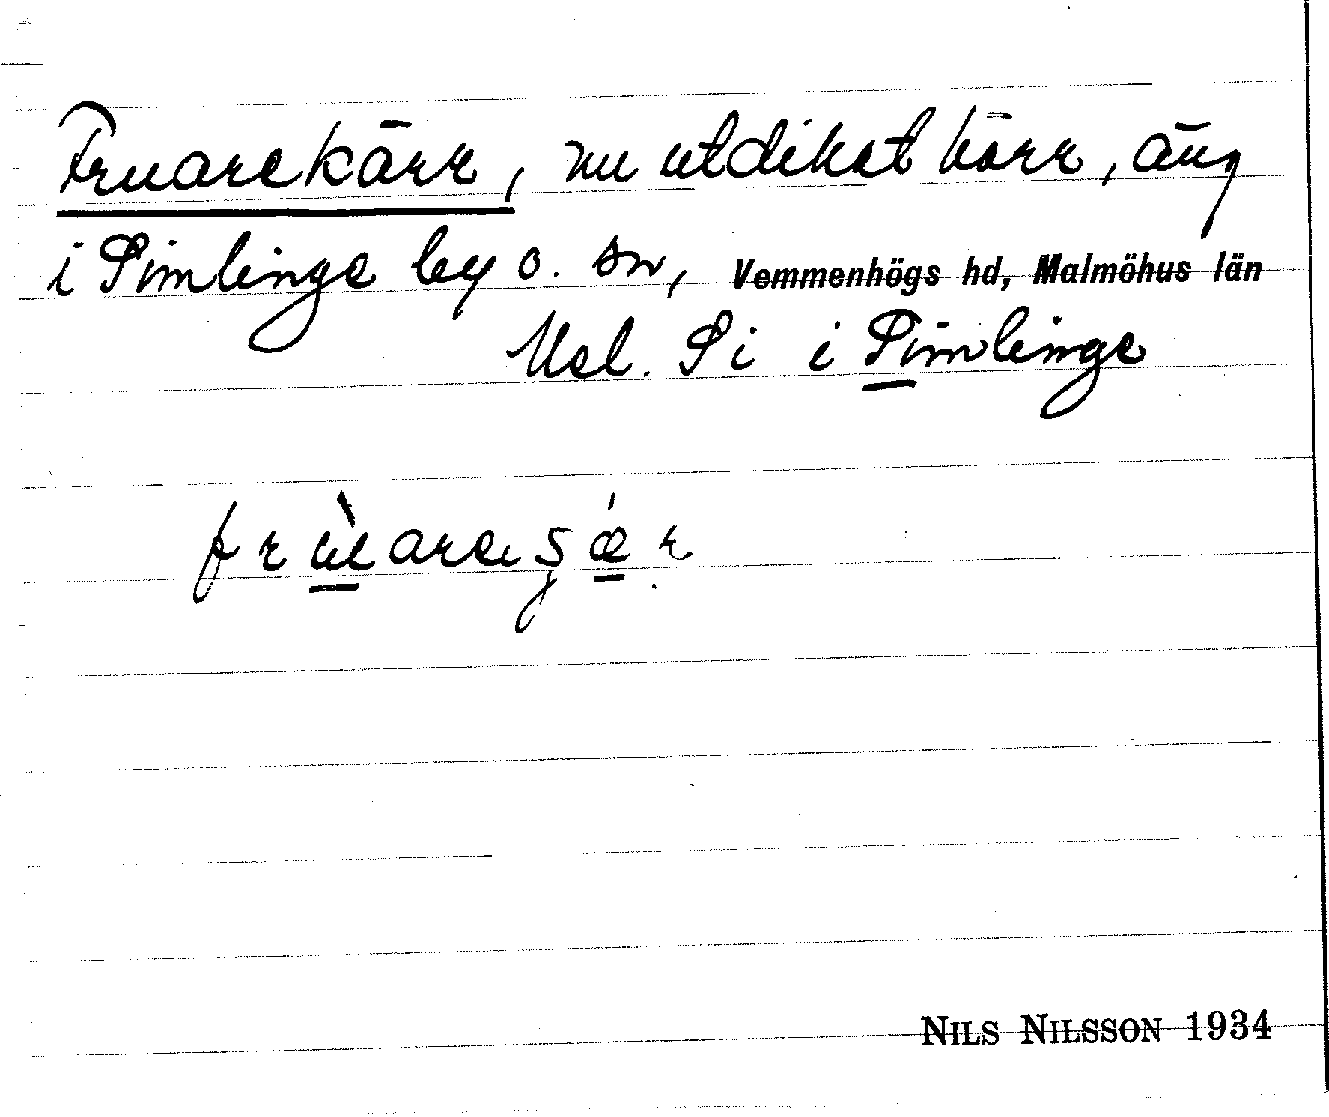 Fruarekärr, nu utdikat kärr, äng
i Simlinge by o. sn, Vemmenhögs hd, Malmöhus län
Mel. Si i Simlinge
NILS NILSSON 1934